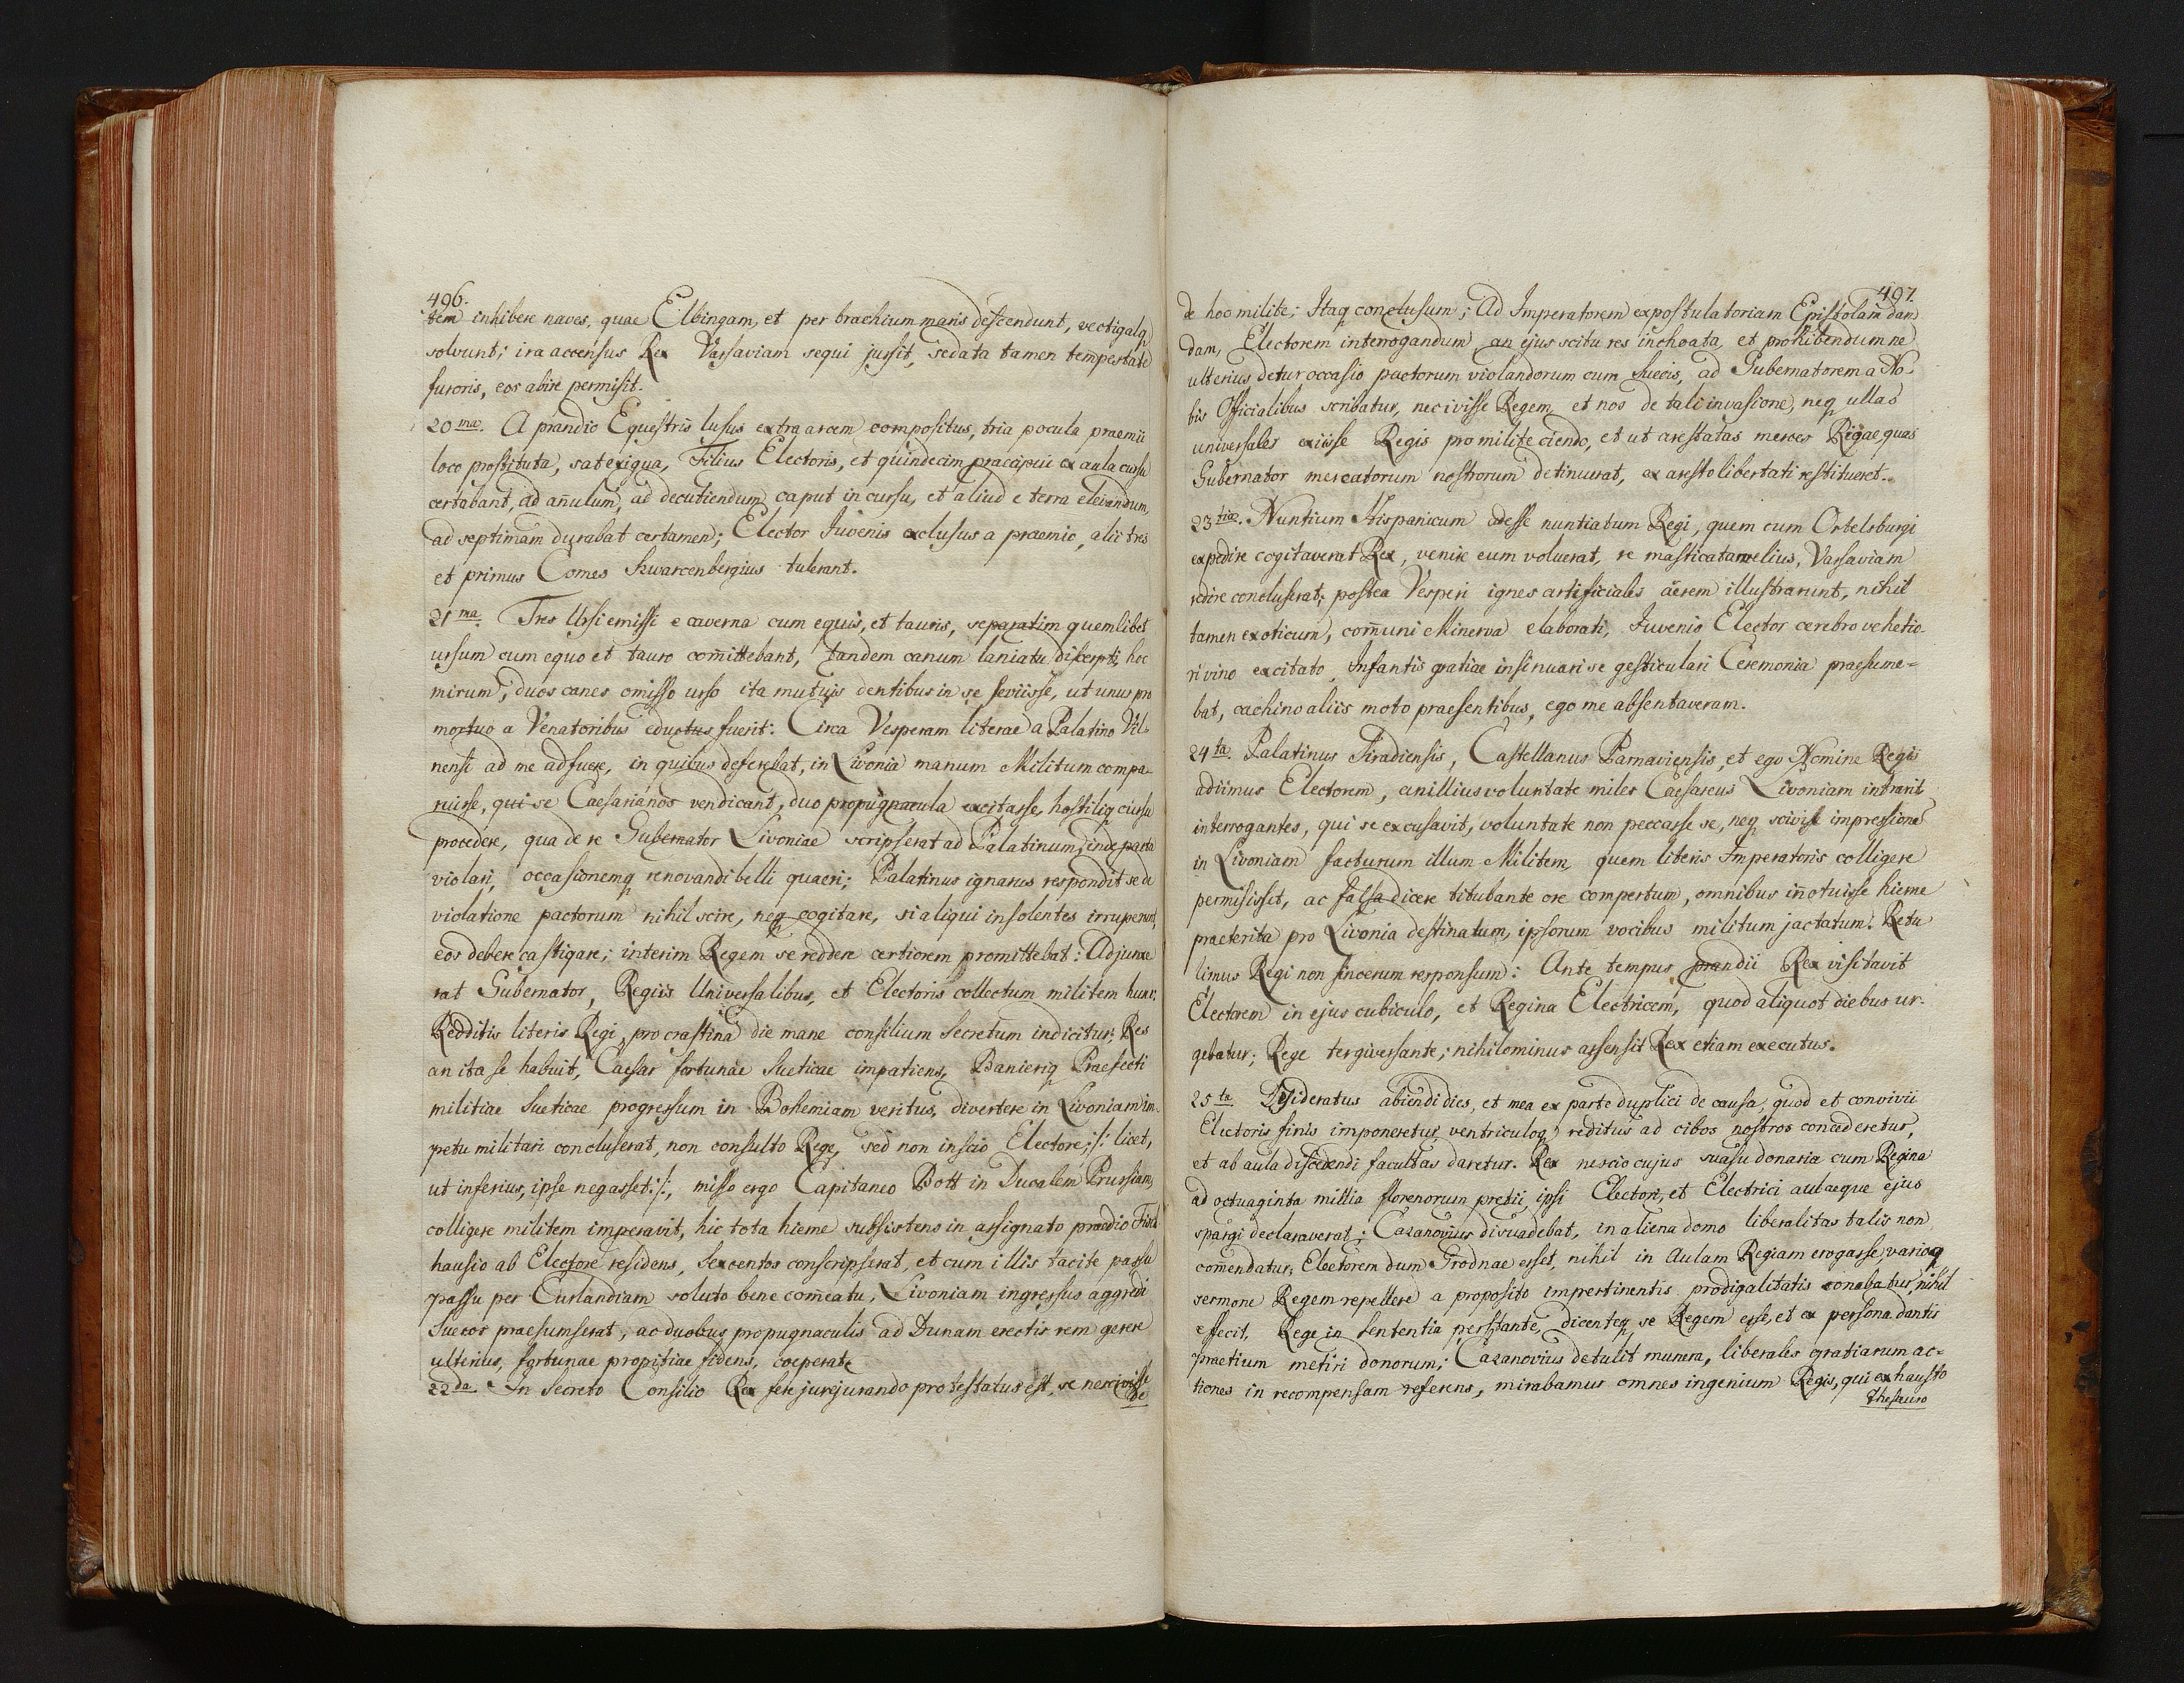 496.
tem inhibere naves, quae Elbingam, et per brachium maris descendunt, vectigalq
solvunt; ira accensus Rex Varsaviam sequi jussit, sedata tamen tempestate
furoris, eos abire permisit.
20 ma. A prandio Equestris lusus extra arcem compositus, tria pocula praemii
loco prostituta, sat exigua, Filius Electoris, et quindecim praecipui ex aula cursu
certabant, ad añulum, ad decutiendum caput in cursu, et aliud e terra elevandum,
ad septimam durabat certamen; Elector Juvenis exclusus a praemio, alii tres
et primus Comes Szwarcenbergius tulerant.
21 ma. Tres Ursi emissi e caverna cum equis, et tauris, separatim quemlibet
ursum cum equo et tauro com̃ittebant, tandem canum laniatu discerpti, hoc
mirum, duos canes omisso urso ita mutuis dentibus in se seviisse, ut unus pro
mortuo a Venatoribus eductus fuerit: Circa Vesperam literae a Palatino Vil-
nensi ad me adfuere, in quibus deferebat, in Livonia manum Militum compa-
ruisse, qui se Caesarianos vendicant, duo propugnacula excitasse, hostiliq cursu
procedere, qua de re Gubernator Livoniae scripserat ad Palatinum, inde pacta
violari, occasionemq renovandi belli quaeri; Palatinus ignarus respondit se de
violatione pactorum nihil scire, neq cogitare, si aliqui insolentes irruperunt,
eos debere castigare; interim Regem se reddere certiorem promittebat: Adjunxe
rat Gubernator, Regiis Universalibus, et Electoris collectum militem hunc;
Redditis literis Regi, pro crastina die mane consilium Secretum indicitur; Res
an ita se habuit, Caesar fortunae Sueticae impatiens, Banieriq Praefecti
militiae Sueticae progressum in Bohemiam veritus, divertere in Livoniam im-
petu militari concluserat, non consulto Rege, sed non inscio Electore; /: licet,
ut inferius, ipse negasset :/, misso ergo Capitaneo Bott in Ducalem Prussiam,
colligere militem imperavit, hic tota hieme subsistens in assignato praedio Fisch
hausio ab Electore residens, Sexcentos conscripserat, et cum illis tacite passu
passu per Curlandiam soluto bene com̃eatu, Livoniam ingressus aggredi
Suecos praesumserat, ac duobus propugnaculis ad Dunam erectis rem gerere
ulterius, fortunae propitiae fidens, coeperat.
22 da. In Secreto Consilio Rex fere jurejurando protestatus est, se nescivisse
de
497.
de hoc milite; Itaq conclusum; Ad Imperatorem expostulatoriam Epistolam dan
dam, Electorem interrogandum an ejus scitu res inchoata, et prohibendum ne
ulterius detur occasio pactorum violandorum cum Suecis, ad Gubernatorem a No-
bis Officialibus scribatur, nescivisse Regem, et nos de tali invasione, neq ullas
universales exiisse Regis pro milite ciendo, et ut arestatas merces Rigae quas
Gubernator mercatorum nostrorum detinuerat, ex aresto libertati restitueret.
23 tia. Nuntium Hispanicum adesse nuntiatum Regi, quem cum Ortelsburgi
expedire cogitaverat Rex, venire eum voluerat, re masticata melius, Varsaviam
redire concluserat; postea Vesperi ignes artificiales aërem illustrarunt, nihil
tamen exoticum, com̃uni Minerva elaborati, Juvenis Elector cerebro vehetio-
ri vino excitato, Infantis gratiae insinuari se gesticulari Ceremonia praesume-
bat, cachino aliis moto praesentibus, ego me absentaveram.
24 ta. Palatinus Siradiensis, Castellanus Parnaviensis, et ego Nomine Regis
adiimus Electorem, an illius voluntate miles Caesareus Livoniam intrarit
interrogantes, qui se excusavit, voluntate non peccasse se, neq scivisse impressione
in Livoniam facturum illum Militem, quem literis Imperatoris colligere
permisisset, ac falsa dicere titubante ore compertum, omnibus iñotuisse hieme
praeterita pro Livonia destinatum, ipsorum vocibus militum jactatum. Retu
limus Regi non sincerum responsum: Ante tempus prandii Rex visitavit
Electorem in ejus cubiculo, et Regina Electricem, quod aliquot diebus ur-
gebatur; Rege tergiversante; nihilominus assensit Rex etiam executus.
25 ta. Desideratus abiendi dies, et mea ex parte duplici de causa, quod et convivii
Electoris finis imponeretur, ventriculoq reditus ad cibos nostros concederetur,
et ab aula discedendi facultas daretur. Rex nescio cujus suasu donaria cum Regina
ad octuaginta millia florenorum pretii, ipsi Electori, et Electrici aulaeque ejus
spargi declaraverat; Cazanovius disvadebat, in aliena domo liberalitas talis non
com̃endatur, Electorem dum Grodnae esset, nihil in Aulam Regiam erogasse, varioq
sermone Regem repellere a proposito impertinentis prodigalitatis conabatur, nihil
effecit, Rege in Sententia perstante, dicenteq se Regem esse, et ex persona dantis
praetium metiri donorum; Cazanovius detulit munera, liberales gratiarum ac-
tiones in recompensam referens, mirabamur omnes ingenium Regis, qui exhausto
Thesauro